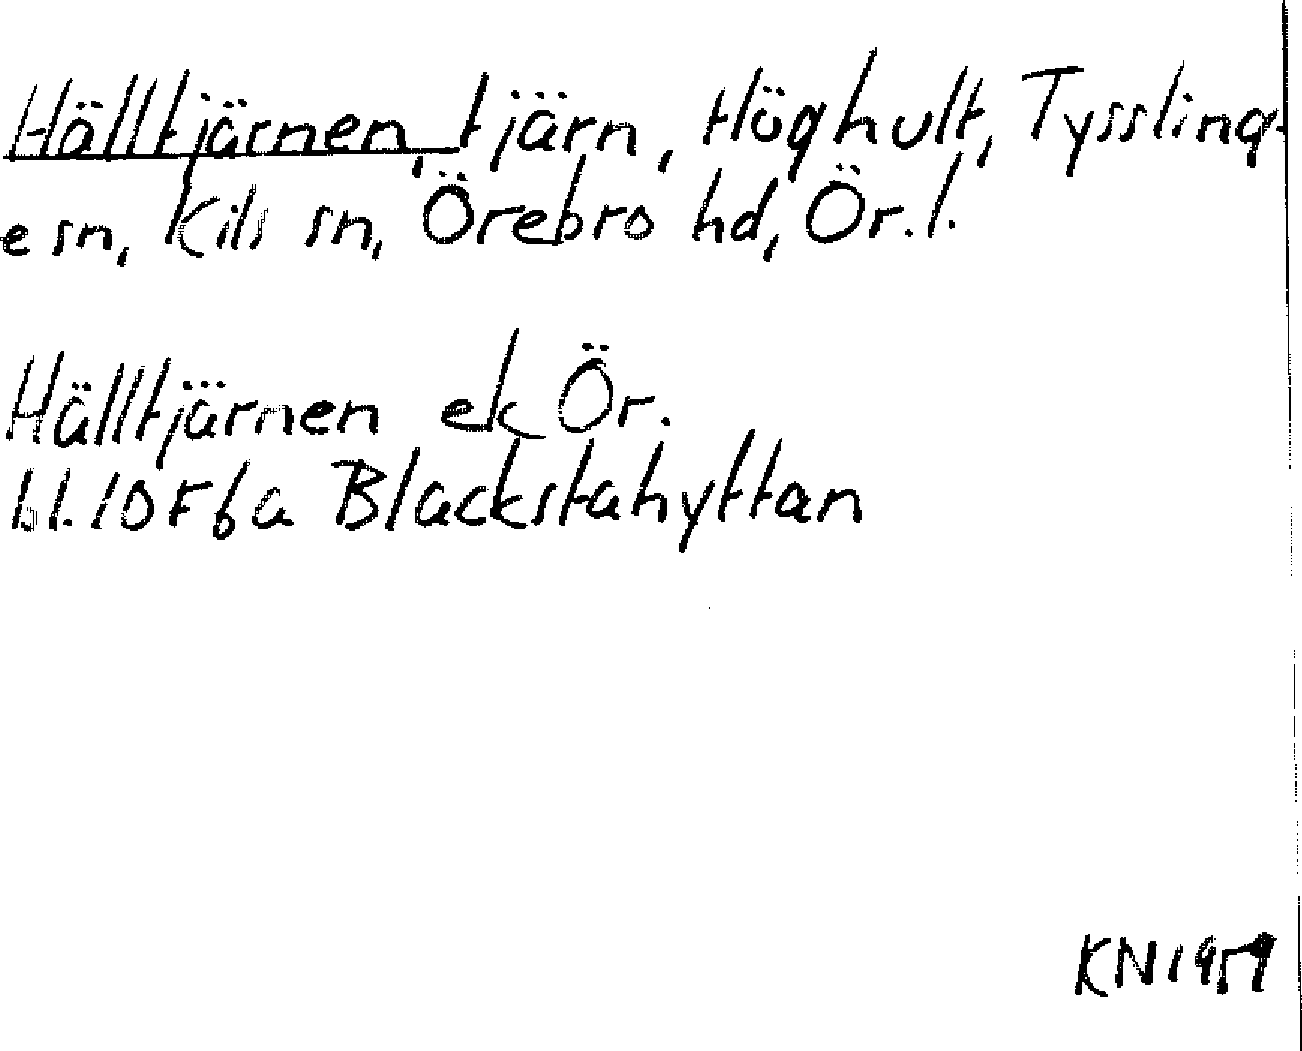 Hälltjärnen, tjärn, Höghult, Tyssling-
e sn, Kils sn, Örebro hd, Ör. l.
Hälltjärnen ek Ör.
bl. 10F6a Blackstahyttan
KN 1959